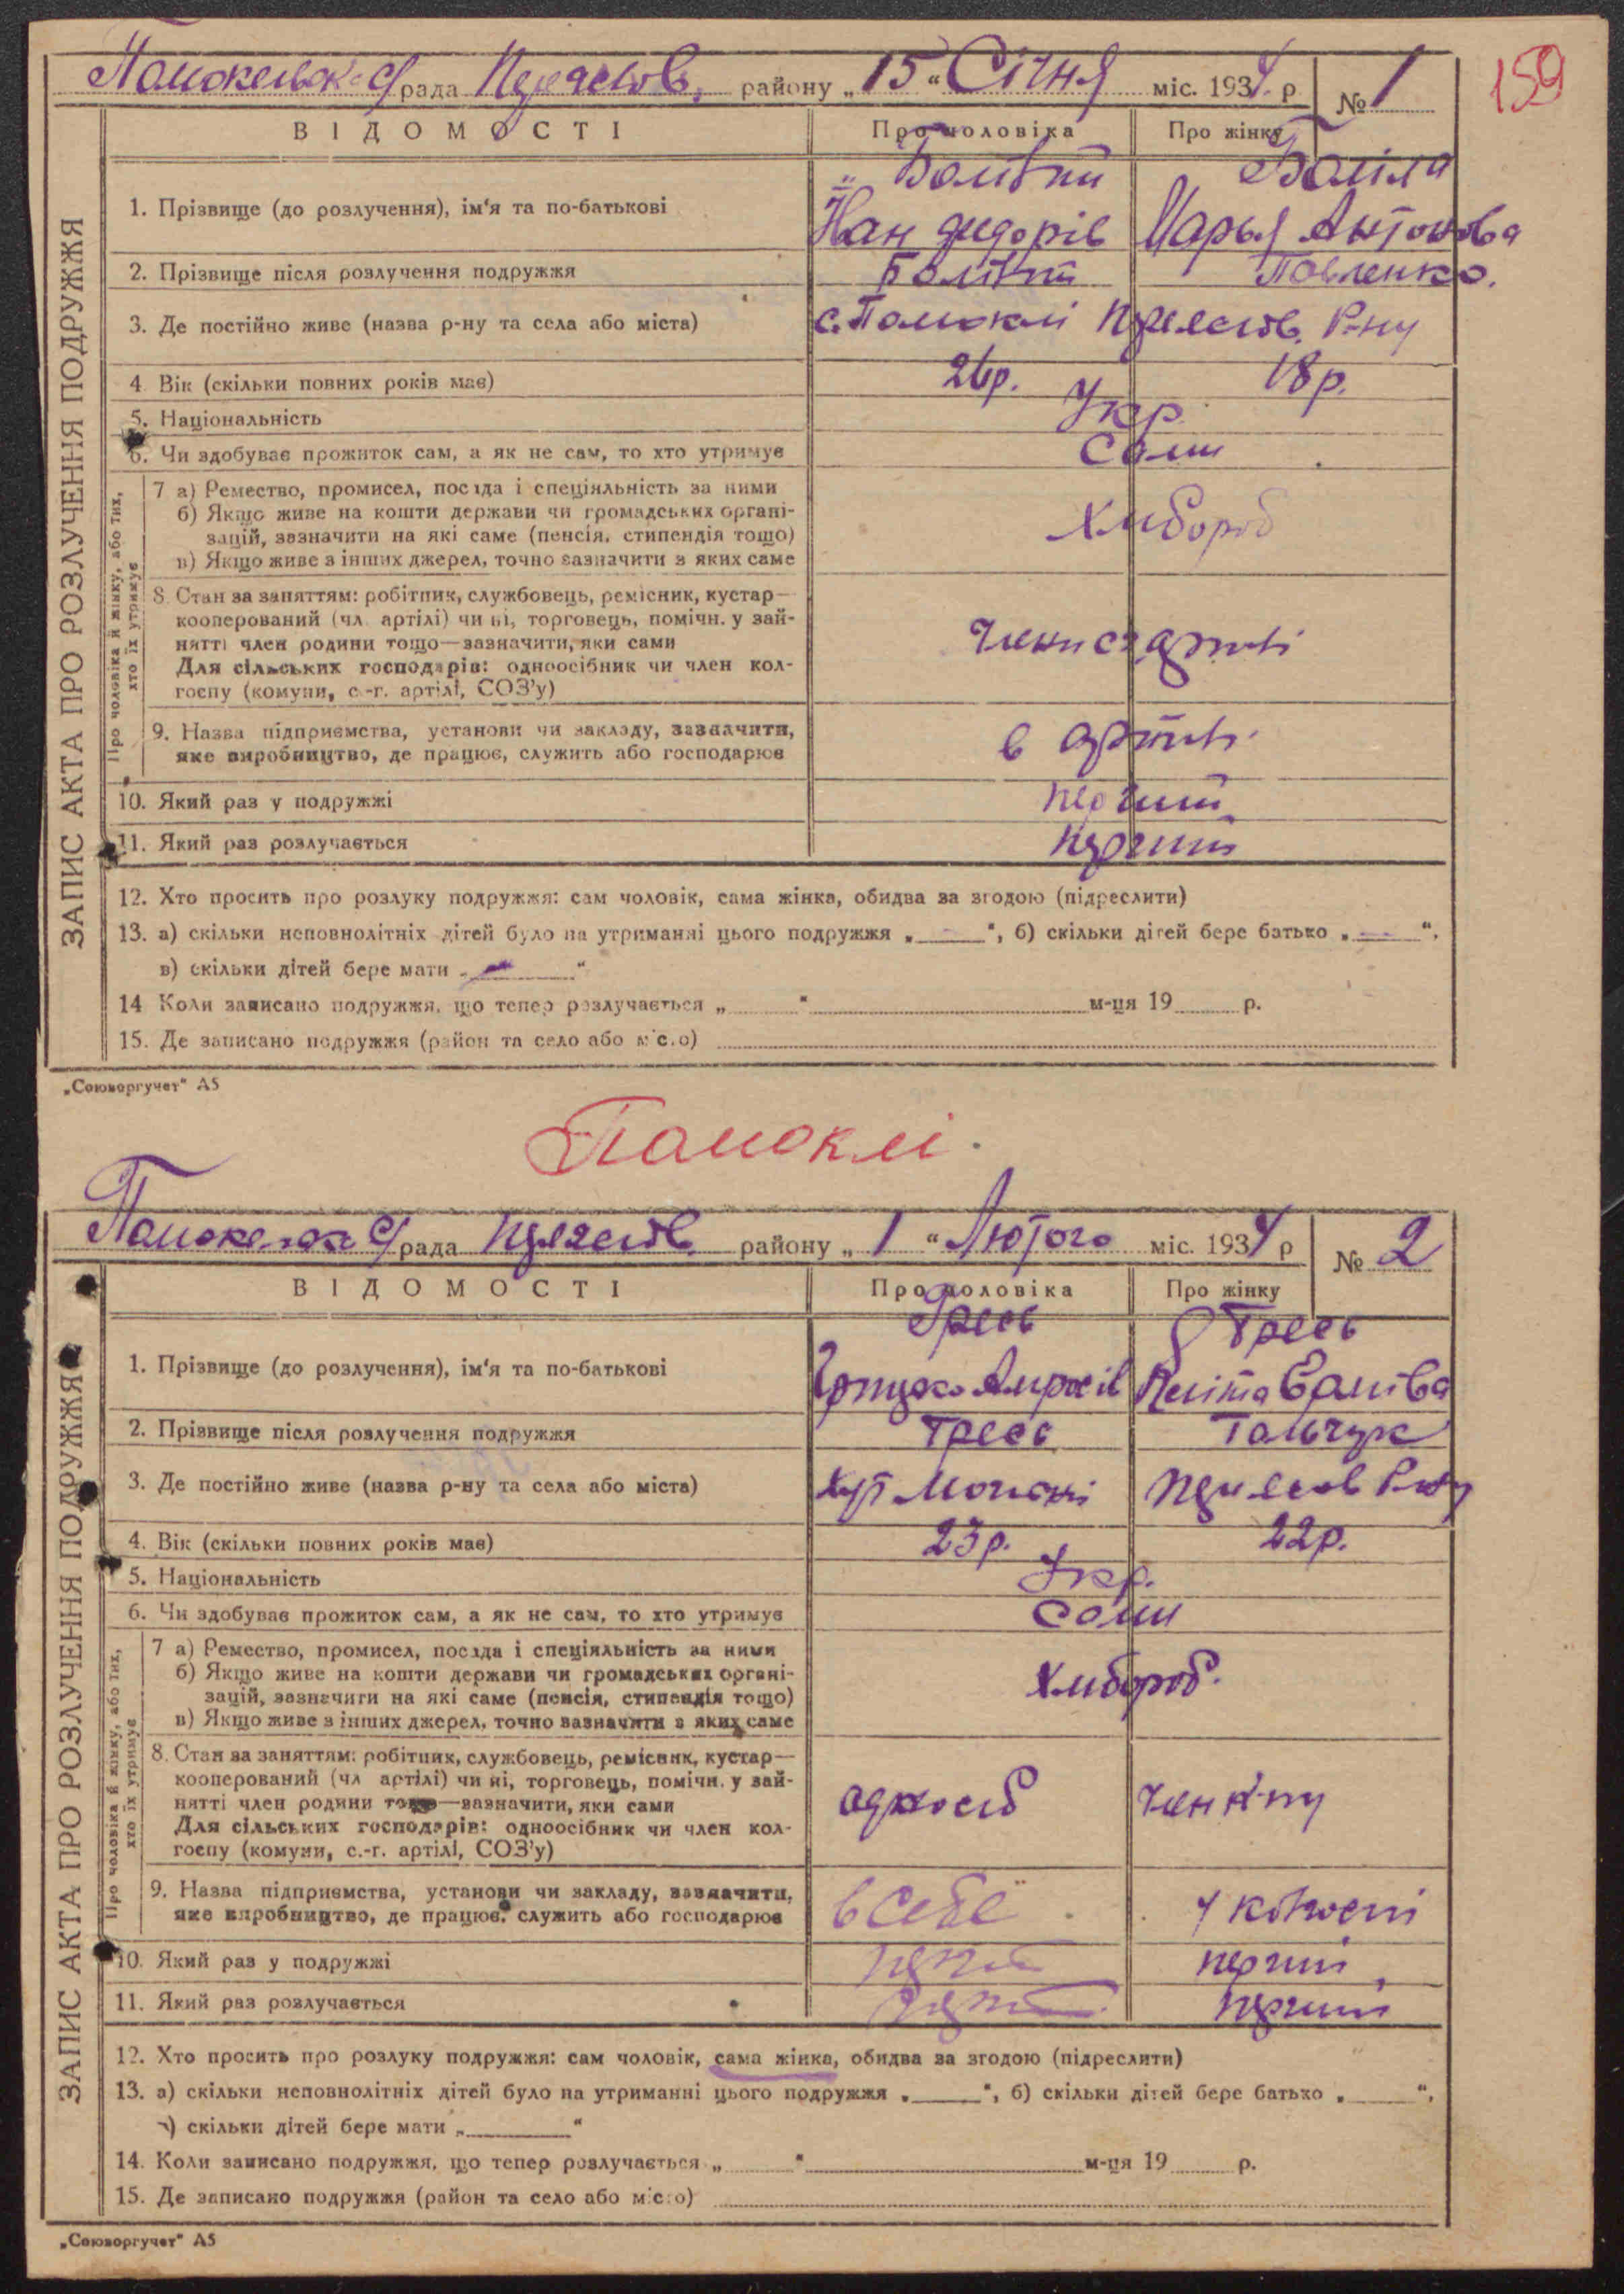 159
Помокельск с/рада Переяслов. району „15“ Січня міс. 1934 р. № 1
ВІДОМОСТІ Про чоловіка Про жінку
ЗАПИС АКТА ПРО РОЗЛУЧЕННЯ ПОДРУЖЖЯ
1. Прізвище (до розлучення), ім'я та по-батькові
Марья Антонова
2. Прізвище після розлучення подружжя Павленко.
3. Де постійно живе (назва р-ну та села або міста) с. Помоклі Переяслов. Р-ну
4. Вік (скільки повних років має) 26р. 18р.
5. Національність Укр
6. Чи здобуває прожиток сам, а як не сам, то хто утримує Сами
Про чоловіка й жінку, або тих, хто їх утримує
7 а) Ремество, промисел, посада і спеціяльність за ними
б) Якщо живе на кошти держави чи громадських органі-
зацій, зазначити на які саме (пенсія, стипендія тощо) Хлібороб
в) Якщо живе з інших джерел, точно зазначити з яких саме
8. Стан за заняттям: робітник, службовець, ремісник, кустар—
кооперований (чл. артілі) чи ні, торговець, помічн. у зай-
нятті член родини тощо—зазначити, яки сами
Для сільських господарів: одноосібник чи член кол-
госпу (комуни, с.-г. артілі, СОЗ'у)
9. Назва підприємства, установи чи закладу, зазначити,
яке виробництво, де працює, служить або господарює в артілі
10. Який раз у подружжі перший
11. Який раз розлучається перший
12. Хто просить про розлуку подружжя: сам чоловік, сама жінка, обидва за згодою (підреслити)
13. а) скільки неповнолітніх дітей було на утриманні цього подружжя „ “, б) скільки дітей бере батько „ “,
в) скільки дітей бере мати „ “
14 Коли записано подружжя, що тепер розлучається „ “ м-ця 19 р.
15. Де записано подружжя (район та село або місто)
„Союзоргучет“ А5
Помоклі.
Помокельск с/рада Переяслов. району „1“ Лютого міс. 1934 р № 2
ВІДОМОСТІ Про чоловіка Про жінку
ЗАПИС АКТА ПРО РОЗЛУЧЕННЯ ПОДРУЖЖЯ
Гресь Гресь
1. Прізвище (до розлучення), ім'я та по-батькові
2. Прізвище після розлучення подружжя Гресь Гальчук
3. Де постійно живе (назва р-ну та села або міста) хут Переяслов Р-ну
4. Вік (скільки повних років має) 23р. 22р.
5. Національність Укр.
6. Чи здобуває прожиток сам, а як не сам, то хто утримує Сами
Про чоловіка й жінку, або тих, хто їх утримує
7 а) Ремество, промисел, посада і спеціяльність за ними
б) Якщо живе на кошти держави чи громадських органі-
зацій, зазначити на які саме (пенсія, стипендія тощо) Хлібороб.
в) Якщо живе з інших джерел, точно зазначити з яких саме
8. Стан за заняттям: робітник, службовець, ремісник, кустар—
кооперований (чл артілі) чи ні, торговець, помічн. у зай-
нятті член родини тощо—зазначити, яки сами одноосіб член к-пу
Для сільських господарів: одноосібник чи член кол-
госпу (комуни, с.-г. артілі, СОЗ'у)
9. Назва підприємства, установи чи закладу, зазначити,
яке виробництво, де працює, служить або господарює в себе у колгоспі
10. Який раз у подружжі перший перший
11. Який раз розлучається перший перший
12. Хто просить про розлуку подружжя: сам чоловік, сама жінка, обидва за згодою (підреслити)
13. а) скільки неповнолітніх дітей було на утриманні цього подружжя „ “, б) скільки дітей бере батько „ “,
в) скільки дітей бере мати „ “
14. Коли записано подружжя, що тепер розлучається „ “ м-ця 19 р.
15. Де записано подружжя (район та село або місто)
„Союзоргучет“ А5